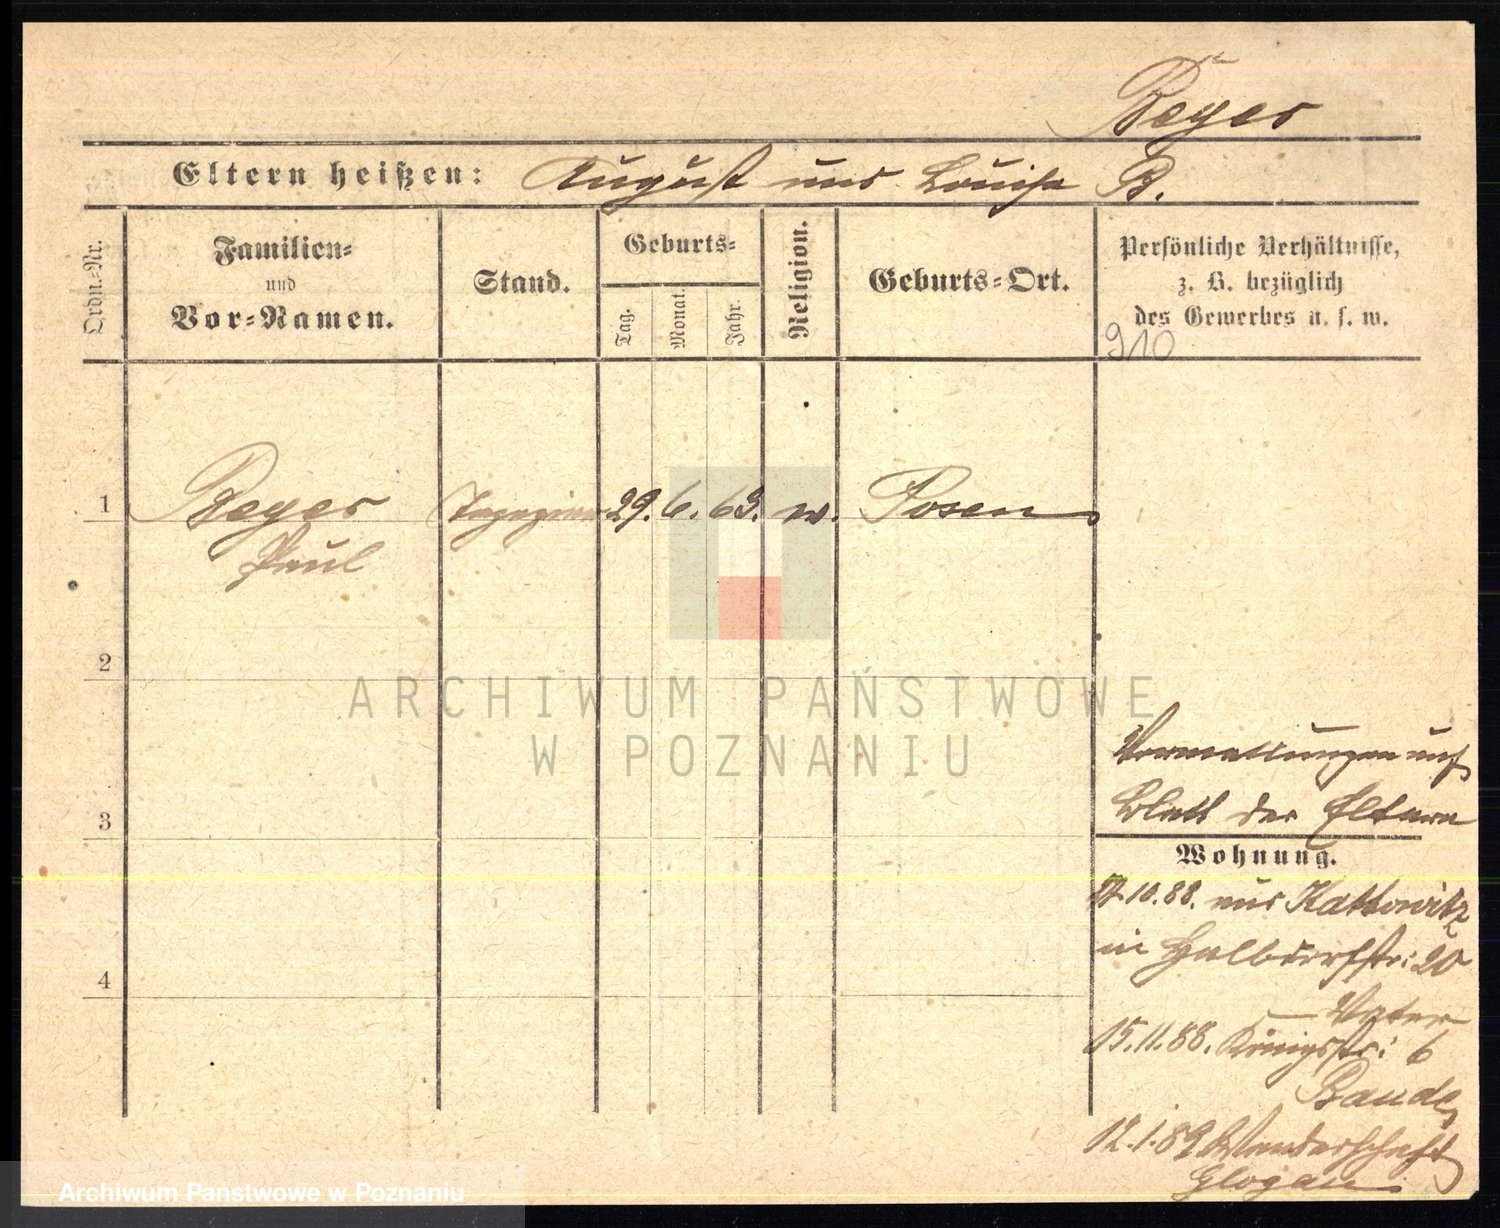 Beyer
Eltern heißen: August und Louise B.
Ordn.-Nr.
Familien-
und
Vor-Namen.
Stand.
Geburts-
Tag.
Monat.
Jahr.
Religion.
Geburts-Ort.
Persönliche Verhältnisse,
z. B. bezüglich
des Gewerbes u. s. w.
910
1 Beyer 29. 6. 63. ev. Posen
Paul
2
ARCHIWUM PAŃSTWOWE
W POZNANIU
auf
Blatt der Eltern
3
Wohnung.
10.88. aus Kattowitz
in Halbdorfstr: 20
Vater
4
15.11.88. Königsstr: 6
Baude
12.1.89 Wanderschaft
Glogau.
Archiwum Panstwowe w Poznaniu